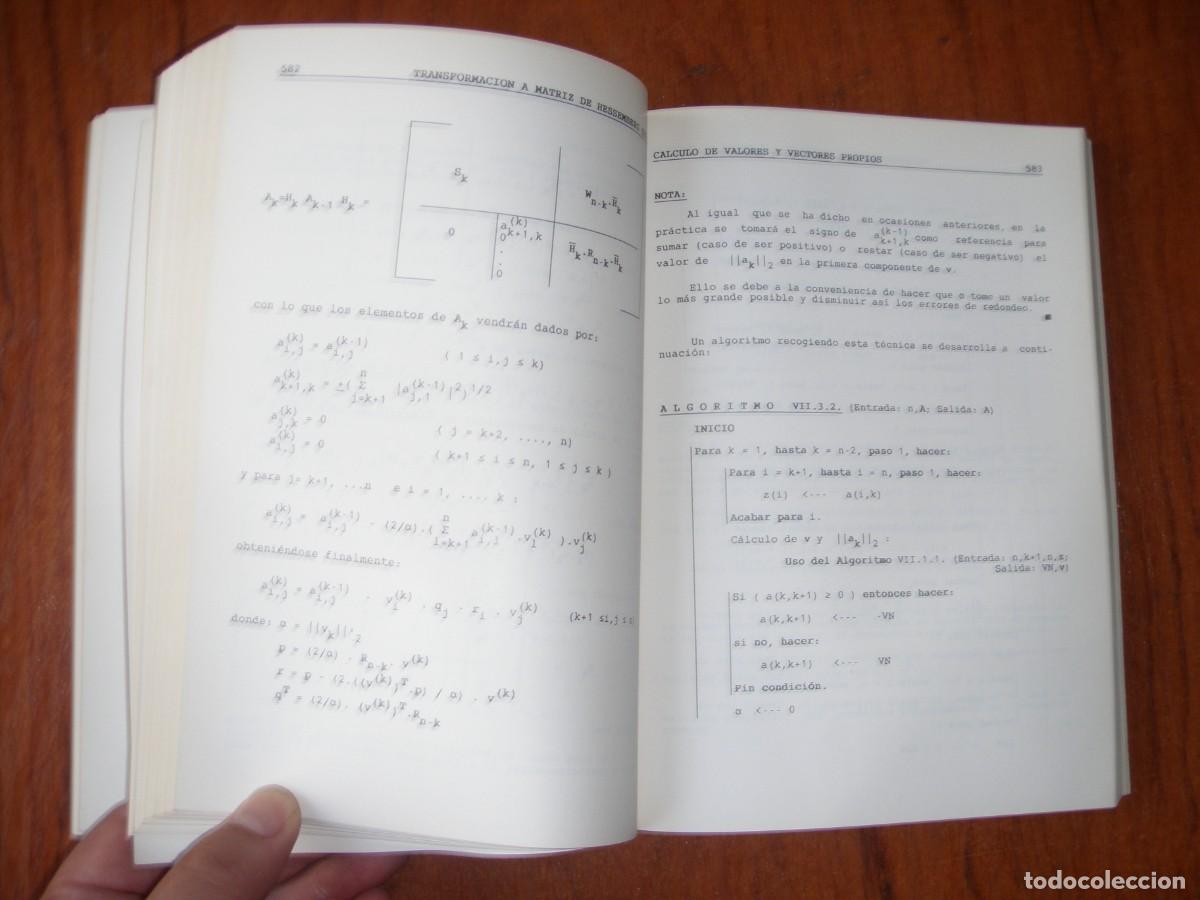 582
TRANSFORMACION A MATRIZ DE HESSEMBERG
A_k=H_k A_{k-1} H_k =
S_k
W_{n-k}.H̄_k
0
a^{(k)}_{k+1,k}
0
.
.
0
H̄_k.R_{n-k}.H̄_k
con lo que los elementos de A_k vendrán dados por:
a^{(k)}_{i,j} = a^{(k-1)}_{i,j} ( 1 ≤ i,j ≤ k)
a^{(k)}_{k+1,k} = ±( Σ^{n}_{j=k+1} |a^{(k-1)}_{j,1}|^2)^{1/2}
a^{(k)}_{j,k} = 0 ( j = k+2, ...., n)
a^{(k)}_{i,j} = 0 ( k+1 ≤ i ≤ n, 1 ≤ j ≤ k )
y para j= k+1, ...n e i = 1, .... k :
a^{(k)}_{i,j} = a^{(k-1)}_{i,j} - (2/α).( Σ^{n}_{l=k+1} a^{(k-1)}_{i,l}.v^{(k)}_l ).v^{(k)}_j
obteniéndose finalmente:
a^{(k)}_{i,j} = a^{(k-1)}_{i,j} - v^{(k)}_i . q_j - r_i . v^{(k)}_j (k+1 ≤i,j ≤
donde: α = ||v_k||²_2
p = (2/α) . R_{n-k}. v^{(k)}
r = p - (2.((v^{(k)})^T.p) / α) . v^{(k)}
q^T = (2/α). (v^{(k)})^T.R_{n-k}
CALCULO DE VALORES Y VECTORES PROPIOS
583
NOTA:
Al igual que se ha dicho en ocasiones anteriores, en la
práctica se tomará el signo de a^{(k-1)}_{k+1,k} como referencia para
sumar (caso de ser positivo) o restar (caso de ser negativo) el
valor de ||a_k||_2 en la primera componente de v.
Ello se debe a la conveniencia de hacer que α tome un valor
lo más grande posible y disminuir así los errores de redondeo.
Un algoritmo recogiendo esta técnica se desarrolla a conti-
nuación:
A L G O R I T M O VII.3.2. (Entrada: n,A; Salida: A)
INICIO
Para k = 1, hasta k = n-2, paso 1, hacer:
Para i = k+1, hasta i = n, paso 1, hacer:
z(i) <--- a(i,k)
Acabar para i.
Cálculo de v y ||a_k||_2 :
Uso del Algoritmo VII.1.1. (Entrada: n,k+1,n,z;
Salida: VN,v)
Si ( a(k,k+1) ≥ 0 ) entonces hacer:
a(k,k+1) <--- -VN
si no, hacer:
a(k,k+1) <--- VN
Fin condición.
α <--- 0
todocoleccion